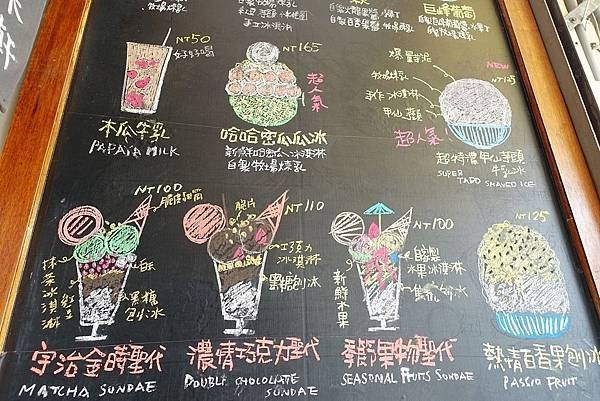 巨峰葡萄
手工冰淇淋
NT50
好好喝
木瓜牛乳
PAPAYA MILK
NT165
超人氣
哈哈密瓜瓜冰
自製牧場煉乳
爆量芋泥
牧場煉乳
手作冰淇淋
甲仙芋頭
NEW
NT125
超人氣!
超特濃甲仙芋頭
牛乳冰
SUPER
TARO SHAVED ICE
NT100
脆皮甜筒
抹茶冰淇淋
紅豆
白玉
黑糖
刨冰
宇治金時聖代
MATCHA SUNDAE
NT110
脆片
巧克力
冰淇淋
黑糖刨冰
濃情巧克力聖代
DOUBLE CHOCOLATE
SUNDAE
NT100
自製
水果冰淇淋
新鮮水果
刨冰
季節果物聖代
SEASONAL FRUITS SUNDAE
NT125
熱情百香果刨冰
PASSIO FRUIT